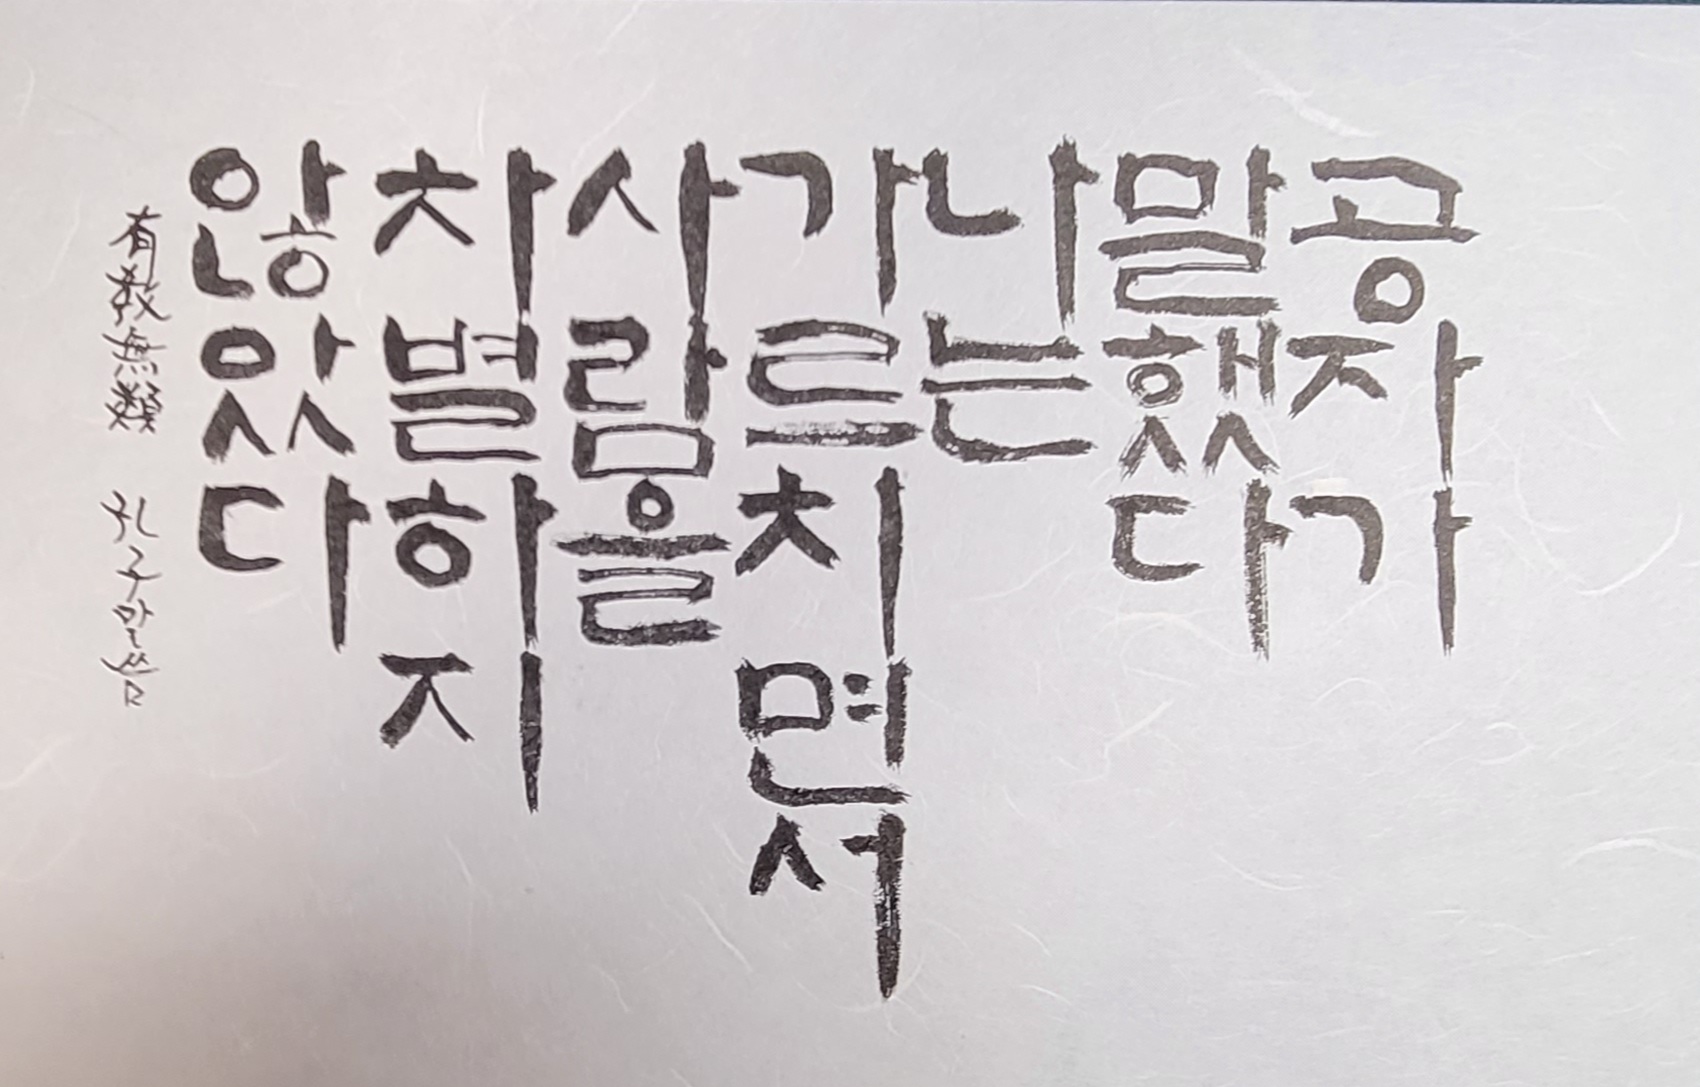 공자가
말했다
나는
가르치면서
사람을
차별하지
않았다
有敎無類 孔子말씀